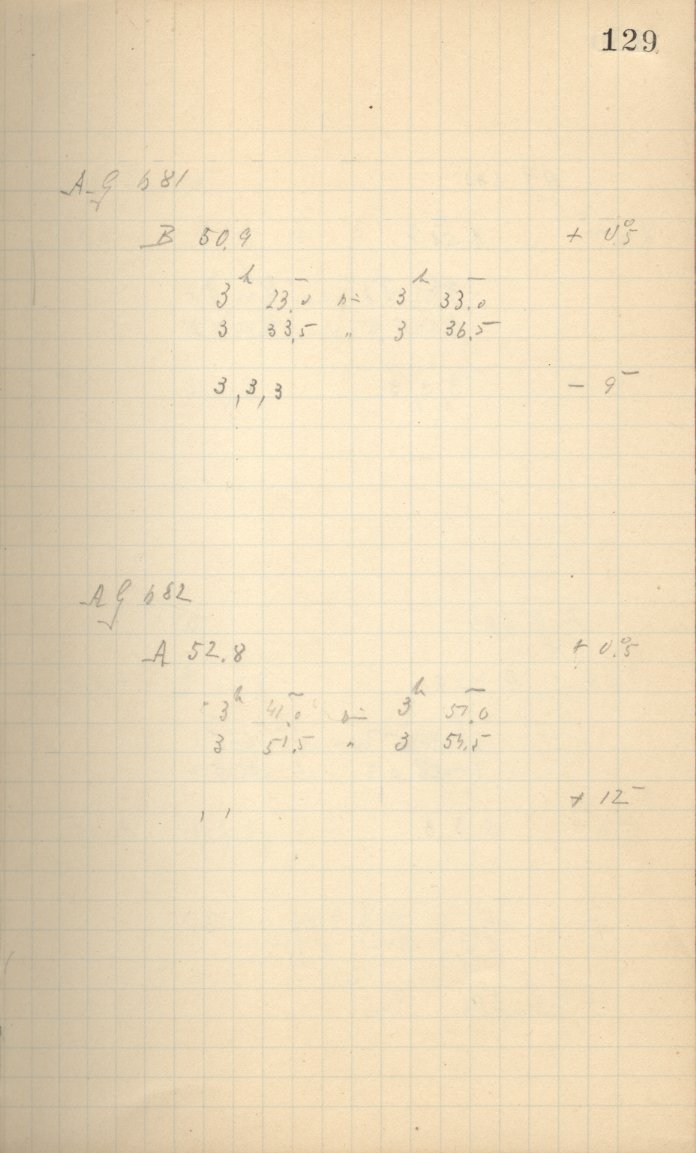 129
AG 681
B 50.9 + 0°.5
3h 23.0 bis 3h 33.0
3 33,5 " 3 36.5
3,3,3 - 9
AG 682
A 52.8 + 0°.5
3h 41.0 bis 3h 51.0
3 51.5 " 3 54.5
, , + 12